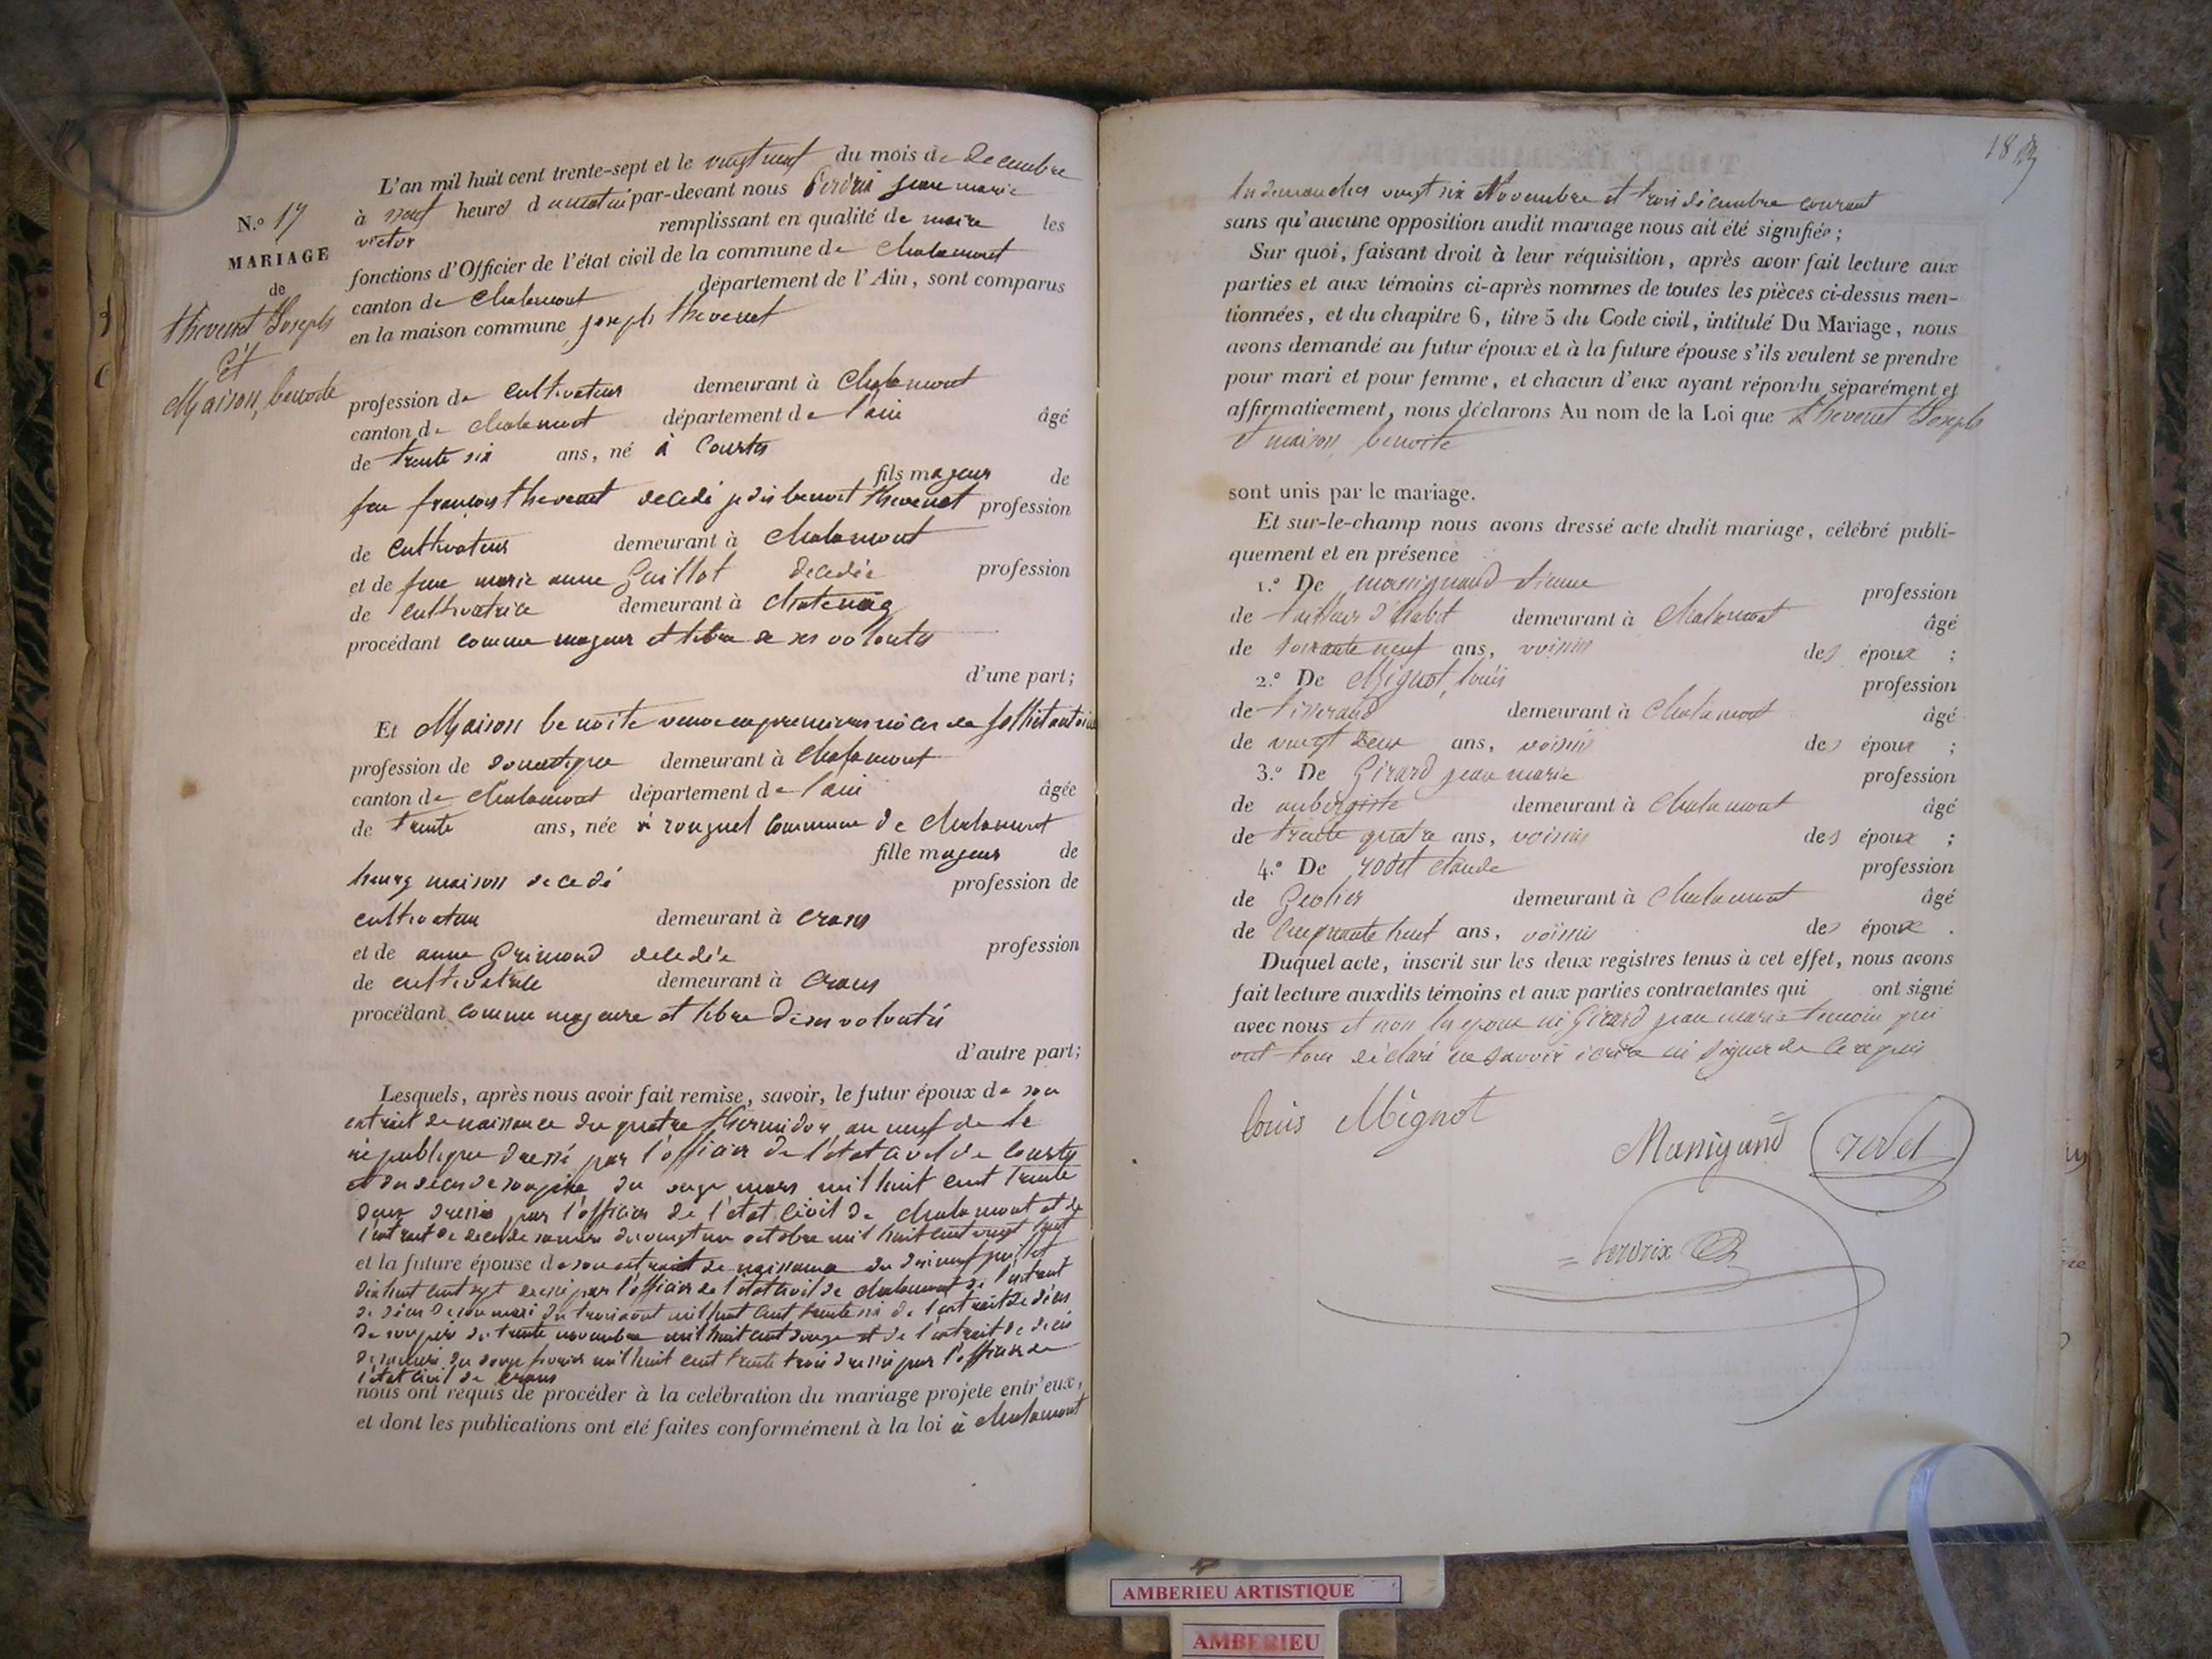 N.º 17
MARIAGE
de
thevenet Joseph
Et
Maison, benoite
L'an mil huit cent trente-sept et le vingt neuf du mois de decembre
à neuf heures du matin par-devant nous Perdrix jean marie
victor remplissant en qualité de maire les
fonctions d'Officier de l'état civil de la commune de chalamont
canton de chalamont département de l'Ain, sont comparus
en la maison commune, joseph thevenet
profession de cultivateur demeurant à chalamont
canton de chalamont département de l'ain âgé
de trente six ans, né à Courtes
fils majeur de
feu françois thevenet decedé benoit thevenet profession
de cultivateur demeurant à chalamont
et de feue marie anne Guillot decedée profession
de cultivatrice demeurant à chatenay
procédant comme majeur et libre de ses volontés
d'une part;
Et Maison benoite veuve en premieres nôces de antoine
profession de domestique demeurant à chalamont
canton de chalamont département de l'ain âgée
de trente ans, née à ronguel commune de chalamont
fille majeur de
henry maison decedé profession de
cultivateur demeurant à crans
et de anne Grimond decedée profession
de cultivatrice demeurant à crans
procédant comme majeure et libre de ses volontés
d'autre part;
Lesquels, après nous avoir fait remise, savoir, le futur époux de son
extrait de naissance du quatre thermidor an neuf de la
république dressé par l'officier de l'état civil de Courtes
et du déces de son père du onze mars mil huit cent trente
deux dressé par l'officier de l'état civil de chalamont et de
l'extrait de deces de sa mère du vingt un octobre mil huit cent vingt huit
et la future épouse de son extrait de naissance du dix neuf juillet
dix huit cent sept dressé par l'officier de l'état civil de chalamont de l'extrait
de déces de son mari du trois août mil huit cent trente six de l'extrait de déces
de son père du trente novembre mil huit cent douze et de l'extrait de déces
de sa mère du douze fevrier mil huit cent trente trois dressé par l'officier de
l'état civil de crans
nous ont requis de procéder à la celébration du mariage projeté entr'eux,
et dont les publications ont été faites conformément à la loi à chalamont
18
les dimanches vingt six Novembre et trois décembre courant
sans qu'aucune opposition audit mariage nous ait été signifiée;
Sur quoi, faisant droit à leur réquisition, après avoir fait lecture aux
parties et aux témoins ci-après nommes de toutes les pièces ci-dessus men-
tionnées, et du chapitre 6, titre 5 du Code civil, intitulé Du Mariage, nous
avons demandé au futur époux et à la future épouse s'ils veulent se prendre
pour mari et pour femme, et chacun d'eux ayant répondu séparément et
affirmativement, nous déclarons Au nom de la Loi que thevenet Joseph
et maison, benoite
sont unis par le mariage.
Et sur-le-champ nous avons dressé acte dudit mariage, célébré publi-
quement et en présence
1.º De manigand etienne profession
de tailleur d'habit demeurant à Chalamont âgé
de soixante neuf ans, voisin des époux ;
2.º De Mignot, louis profession
de tisserand demeurant à Chalamont âgé
de vingt deux ans, voisin des époux ;
3.º De Girard jean marie profession
de aubergiste demeurant à Chalamont âgé
de trente quatre ans, voisin des époux ;
4.º De rodet claude profession
de Geolier demeurant à Chalamont âgé
de Cinquante huit ans, voisin des époux .
Duquel acte, inscrit sur les deux registres tenus à cet effet, nous avons
fait lecture auxdits témoins et aux parties contractantes qui ont signé
avec nous et non les epoux ni Girard jean marie temoin qui
ont tous déclaré ne savoir écrire ni signer de ce requis
louis Mignot
Manigand
rodet
Perdrix
AMBERIEU ARTISTIQUE
AMBERIEU